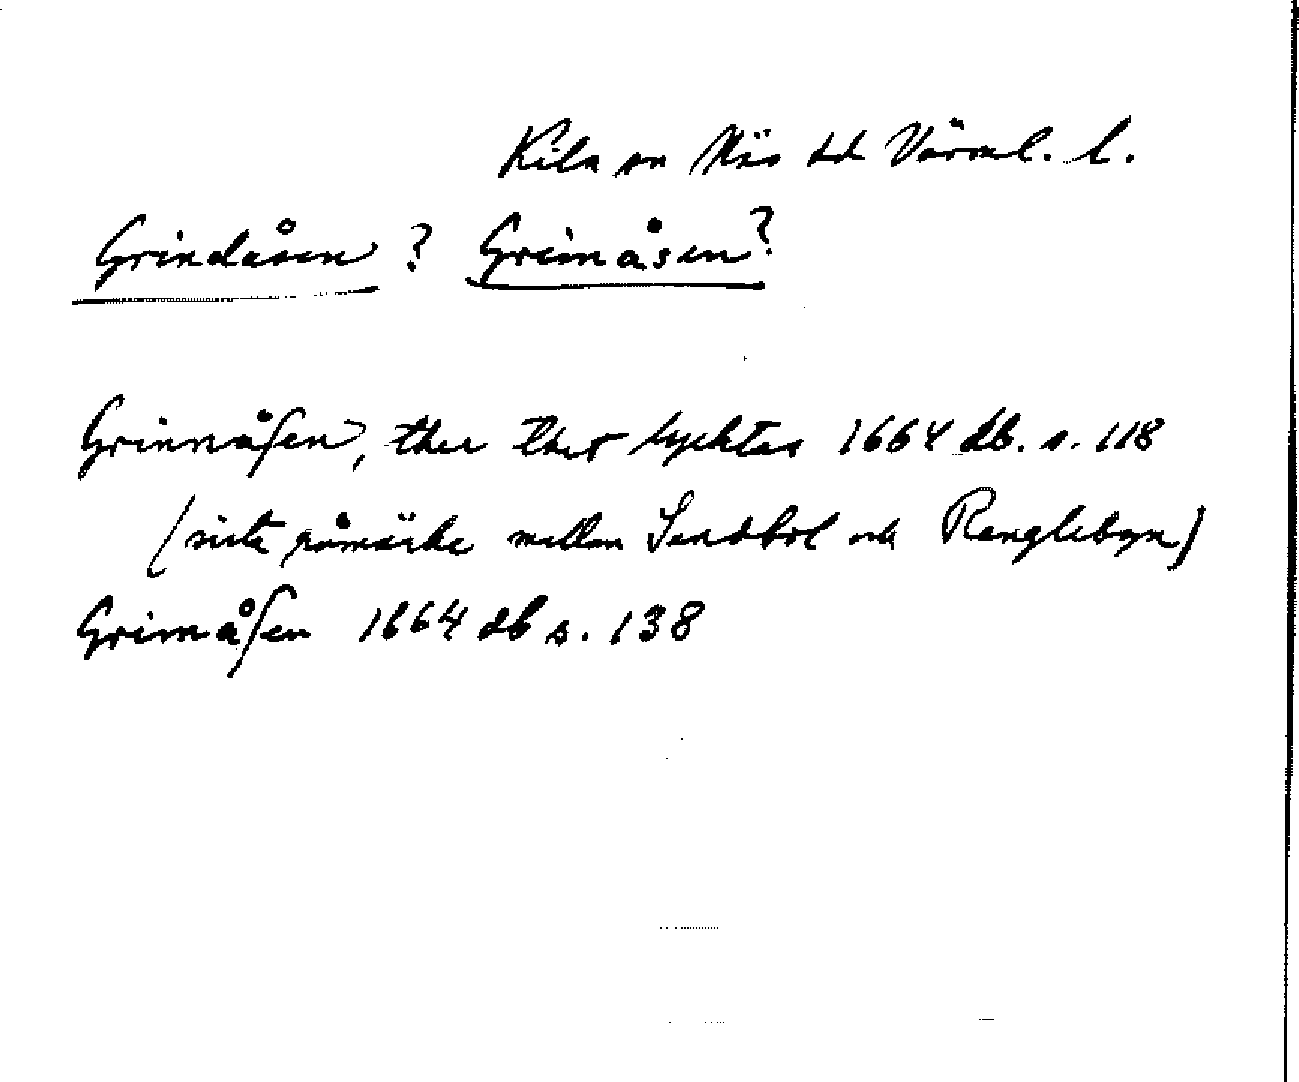 Kila sn Näs hd Värml. l.
Grindåsen ? Grimåsen ?
Grinnåsen, ther thet lychtas 1664 db. s. 118
(sista råmärke mellan Sandbol och Ränglebyn)
Grimåsen 1664 db s. 138